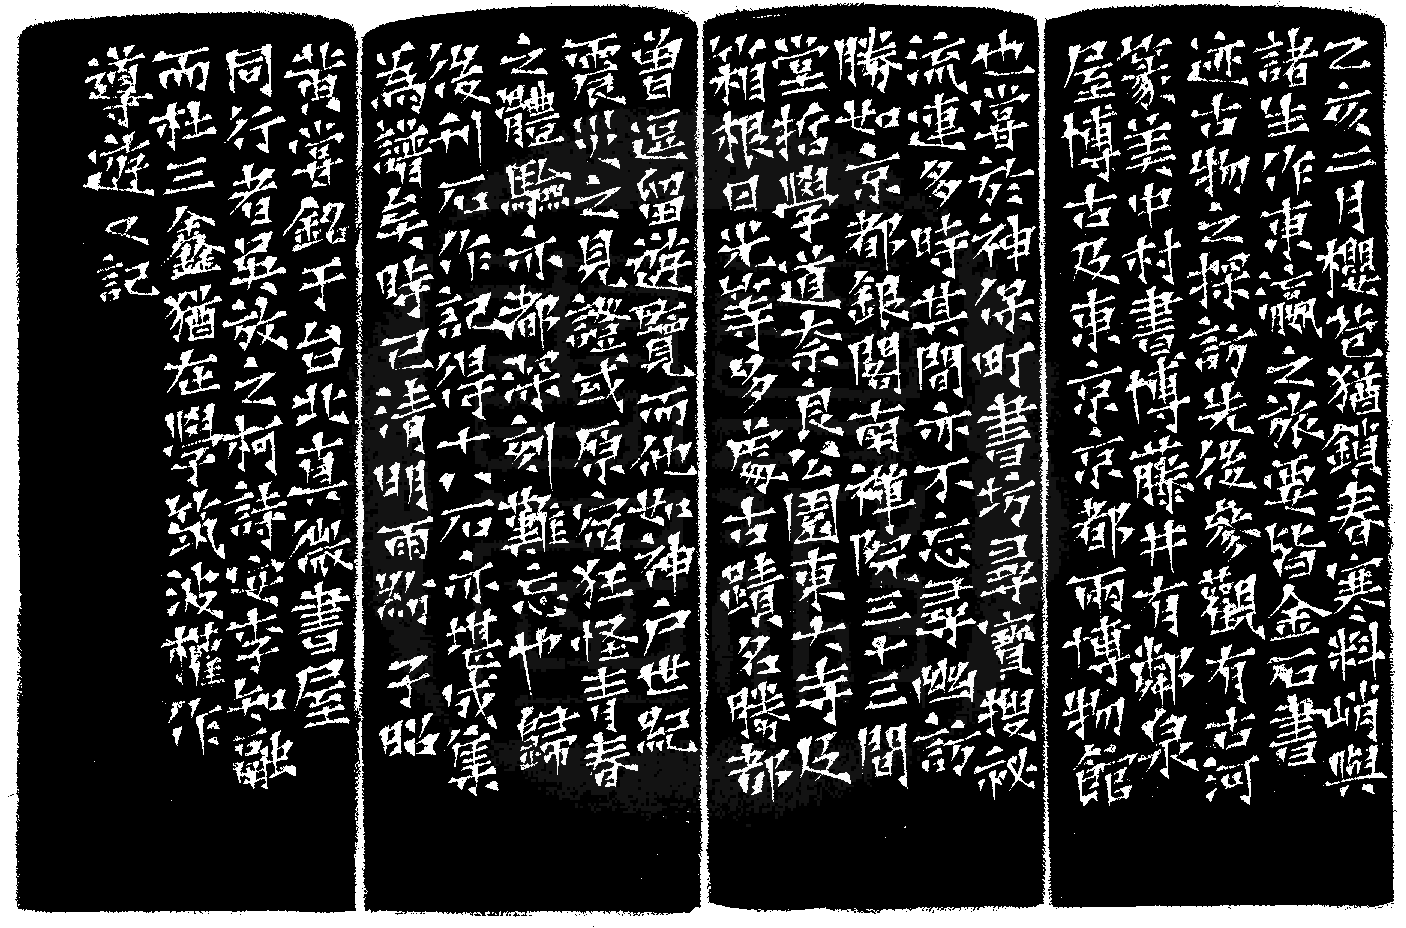 乙亥二月櫻芭猶鎖春寒料峭與
諸生作東瀛之旅要皆金石書
迹古物之探訪先後參觀有古河
篆美中村書博藤井有鄰泉
屋博古及東京京都兩博物館
也嘗於神保町書坊尋寶搜祕
流連多時其間亦不忘尋幽訪
勝如京都銀閣南禪院三十三間
堂哲學道奈良公園東大寺及
箱根日光等多處古蹟名勝都
曾逗留遊覽而他如神戶世紀
震災之見證或原宿狂怪青春
之體驗亦都深刻難忘也歸
後刊石作記得十八石亦堪成集
為譜矣時己清明雨紛 子昭
黃嘗銘于台北真微書屋
同行者吳放之柯詩安李知
而杜三鑫猶在學筑波權作
導遊又記